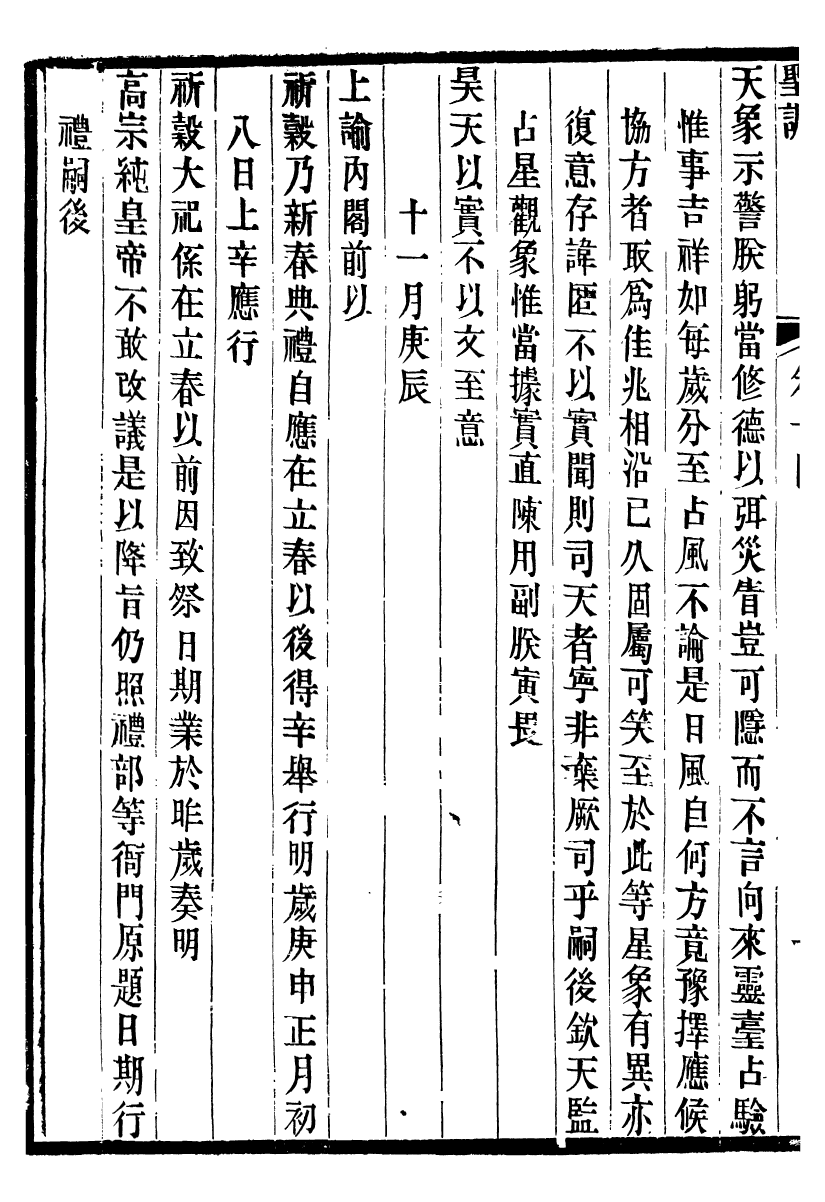 聖訓
天象示警朕躬當修德以弭災眚豈可隱而不言向來靈臺占驗
惟事吉祥如每歲分至占風不論是日風自何方竟豫擇應候
協方者取爲佳兆相沿已久固屬可笑至於此等星象有異亦
復意存諱匿不以實聞則司天者寧非棄厥司乎嗣後欽天監
占星觀象惟當據實直陳用副朕寅畏
昊天以實不以文至意
十一月庚辰
上諭內閣前以
祈穀乃新春典禮自應在立春以後得辛舉行明歲庚申正月初
八日上辛應行
祈穀大祀係在立春以前因致祭日期業於昨歲奏明
高宗純皇帝不敢改議是以降旨仍照禮部等衙門原題日期行
禮嗣後